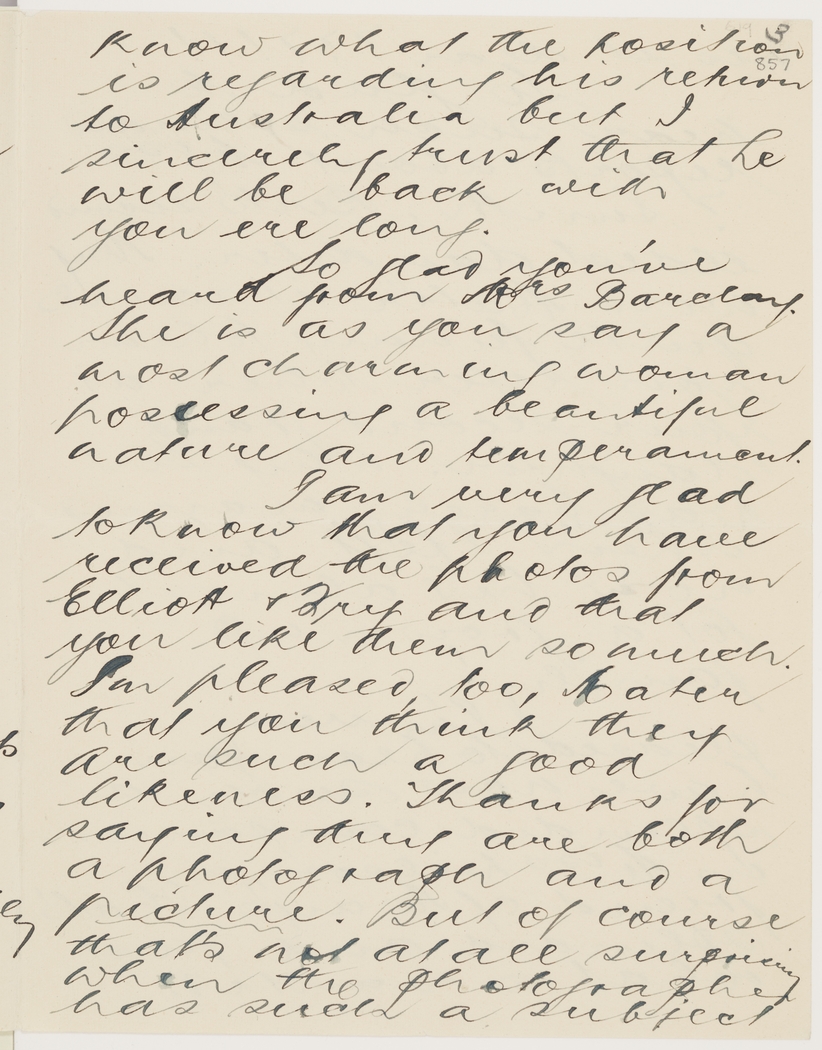 3
857
know what the position
is regarding his return
to Australia but I
sincerely trust that he
will be back with
you ere long.
So glad you've
heard from Mrs Barclay.
She is as you say a
most charming woman
possessing a beautiful
nature and temperament.
I am very glad
to know that you have
received the photos from
Elliott & Fry and that
you like them so much.
I'm pleased, too, Mater
that you think they
are such a good
likeness. Thanks for
saying they are both
a photograph and a
picture. But of course
that's not at all surprising
when the photographer
has such a subject